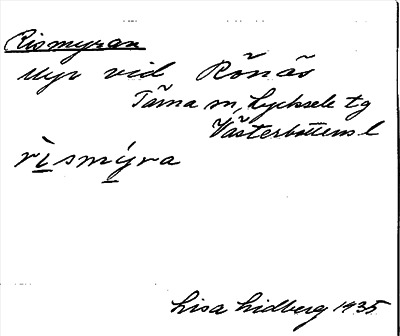 Rismyran
Myr vid Rönäs
Tärna sn, Lycksele tg
Västerbottens l
rìsmýra
Lisa Lidberg 1935